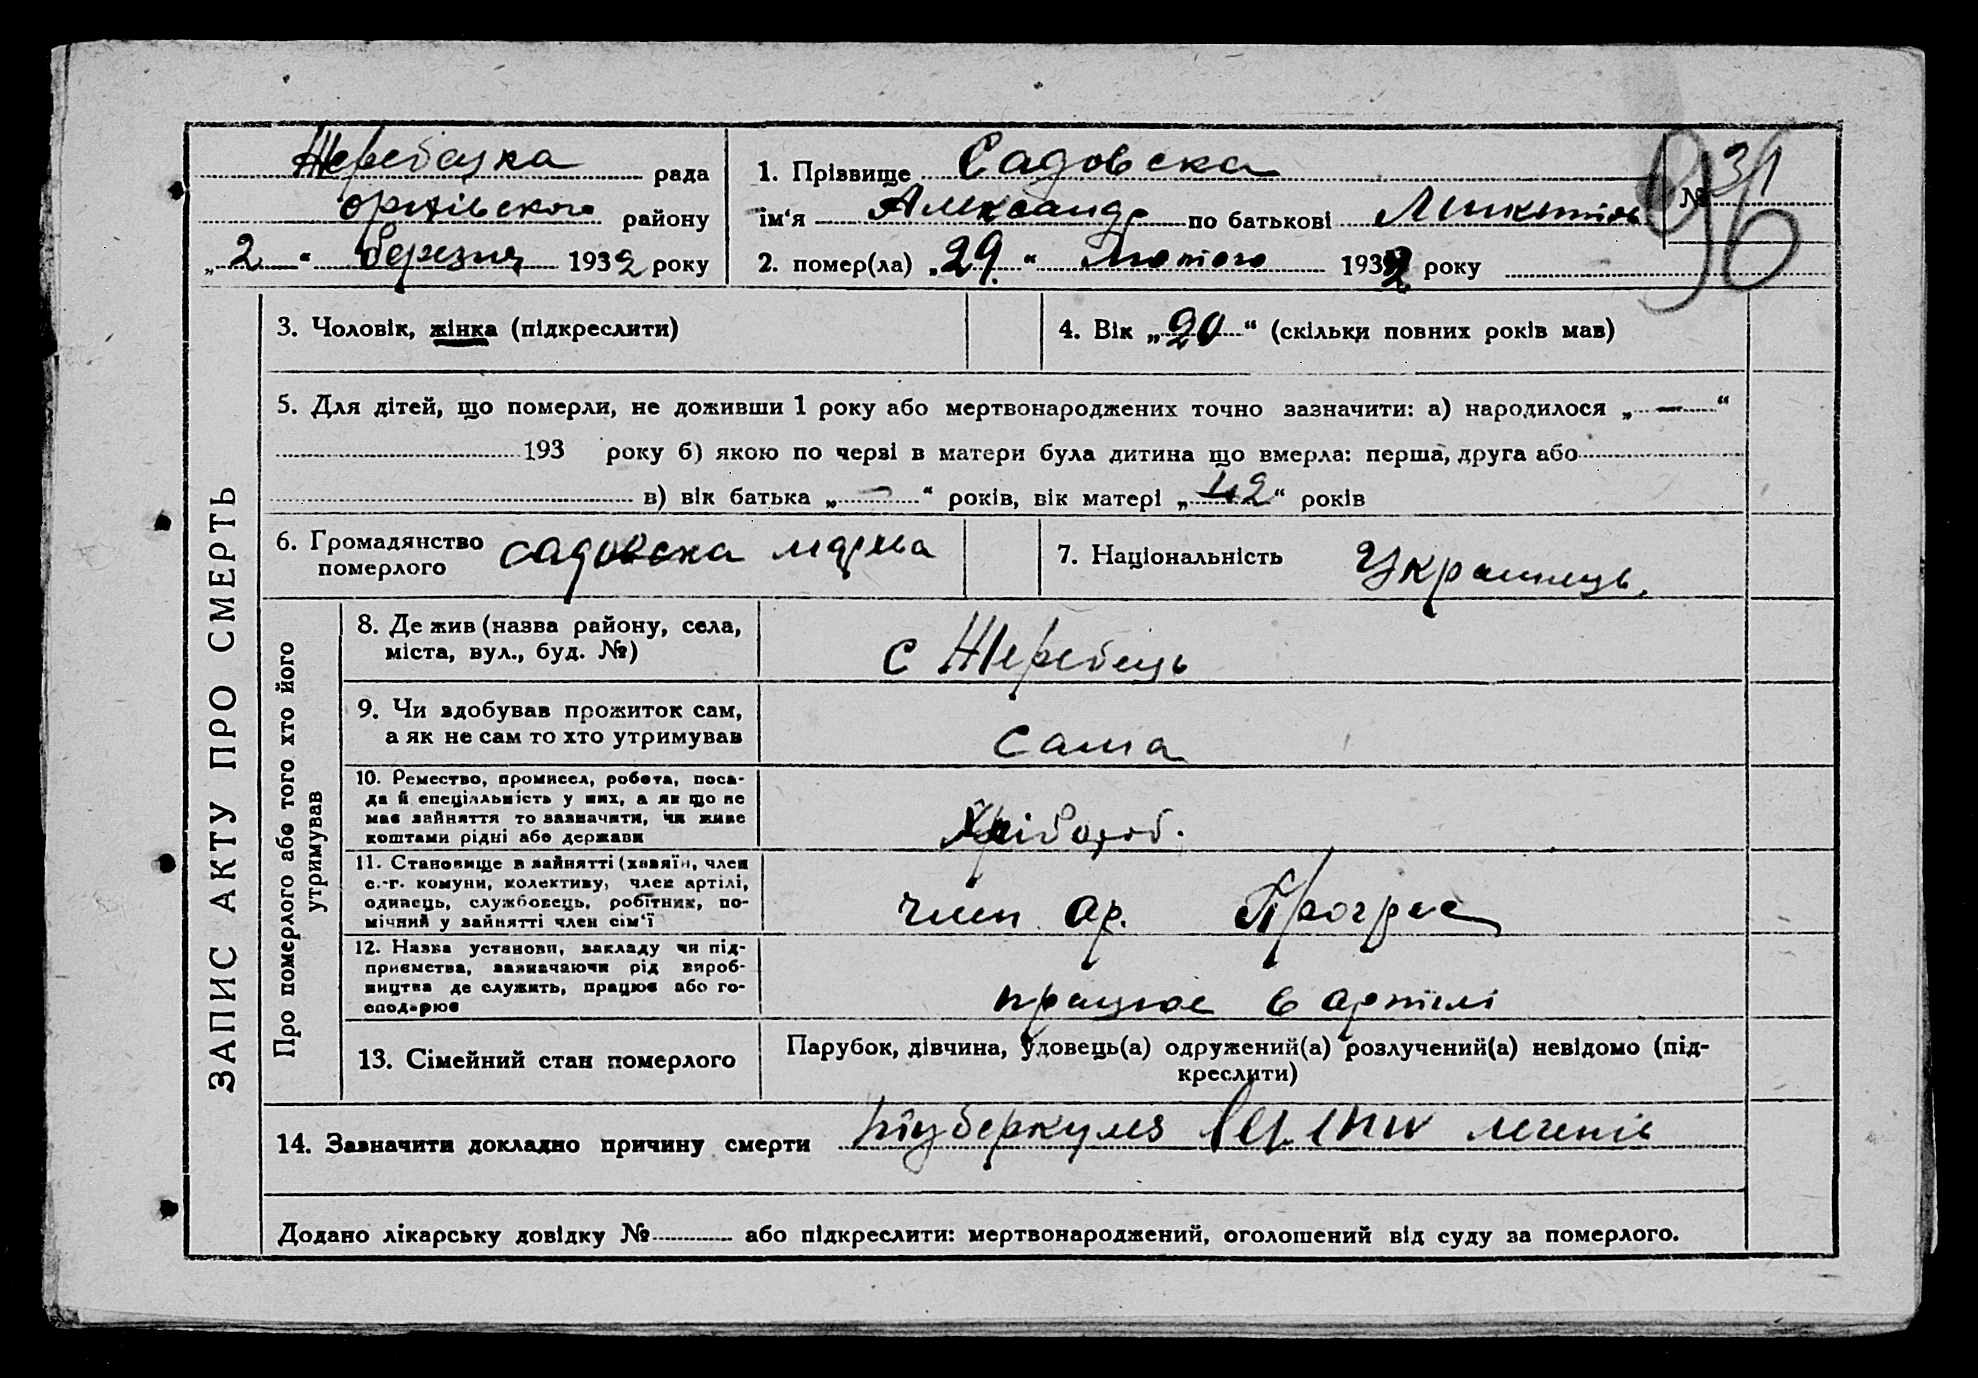 Жеребецка рада
оріхівського району
„2“ березня 1932 року
1. Прізвище Садовска
ім'я Александ по батькові
№ 31
96
2. помер(ла) „29“ Лютого 1932 року
ЗАПИС АКТУ ПРО СМЕРТЬ
3. Чоловік, жінка (підкреслити)
4. Вік „20“ (скільки повних років мав)
5. Для дітей, що померли, не доживши 1 року або мертвонароджених точно зазначити: а) народилося „—“
193 року б) якою по черзі в матери була дитина що вмерла: перша, друга або
в) вік батька „—“ років, вік матері „42“ років
6. Громадянство померлого садовска
7. Національність Українець.
Про померлого або того хто його утримував
8. Де жив (назва району, села,
міста, вул., буд. №)
с Жеребець
9. Чи здобував прожиток сам,
а як не сам то хто утримував
сама
10. Ремество, промисел, робота, поса-
да й спеціяльність у них, а як що не
має зайняття то зазначити, чи живе
коштами рідні або держави
Хлібороб.
11. Становище в зайнятті (хазяїн, член
с.-г. комуни, колективу, член артілі,
одинець, службовець, робітник, по-
мічний у зайнятті член сім'ї
член ар. Прогрес
12. Назва установи, закладу чи під-
приємства, зазначаючи рід вироб-
ництва де служить, працює або го-
сподарює
працює в артілі
13. Сімейний стан померлого
Парубок, дівчина, удовець(а) одружений(а) розлучений(а) невідомо (під-
креслити)
14. Зазначити докладно причину смерти туберкульоз легенів
Додано лікарську довідку № або підкреслити: мертвонароджений, оголошений від суду за померлого.